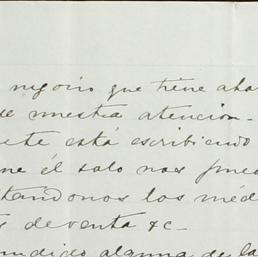 negocio que tiene aha
de nuestra atencion.
ete está escribiendo
ne él solo nos pued
tandonos los méd
s de venta &c.
endido alguna de la